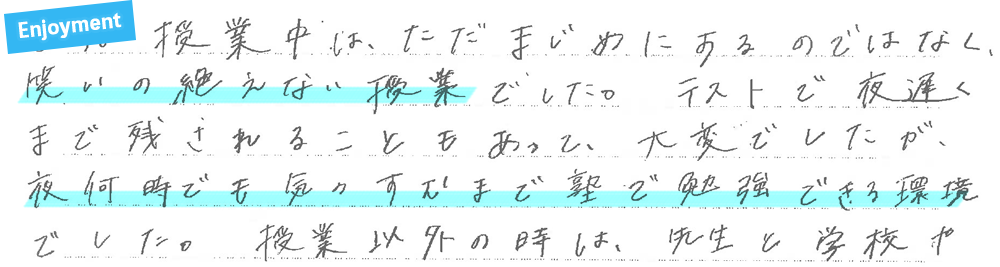 Enjoyment
授業中は、ただまじめにするのではなく、
笑いの絶えない授業でした。 テストで夜遅く
まで残されることもあって、大変でしたが、
夜何時でも気のすむまで塾で勉強できる環境
でした。 授業以外の時は、先生と学校や